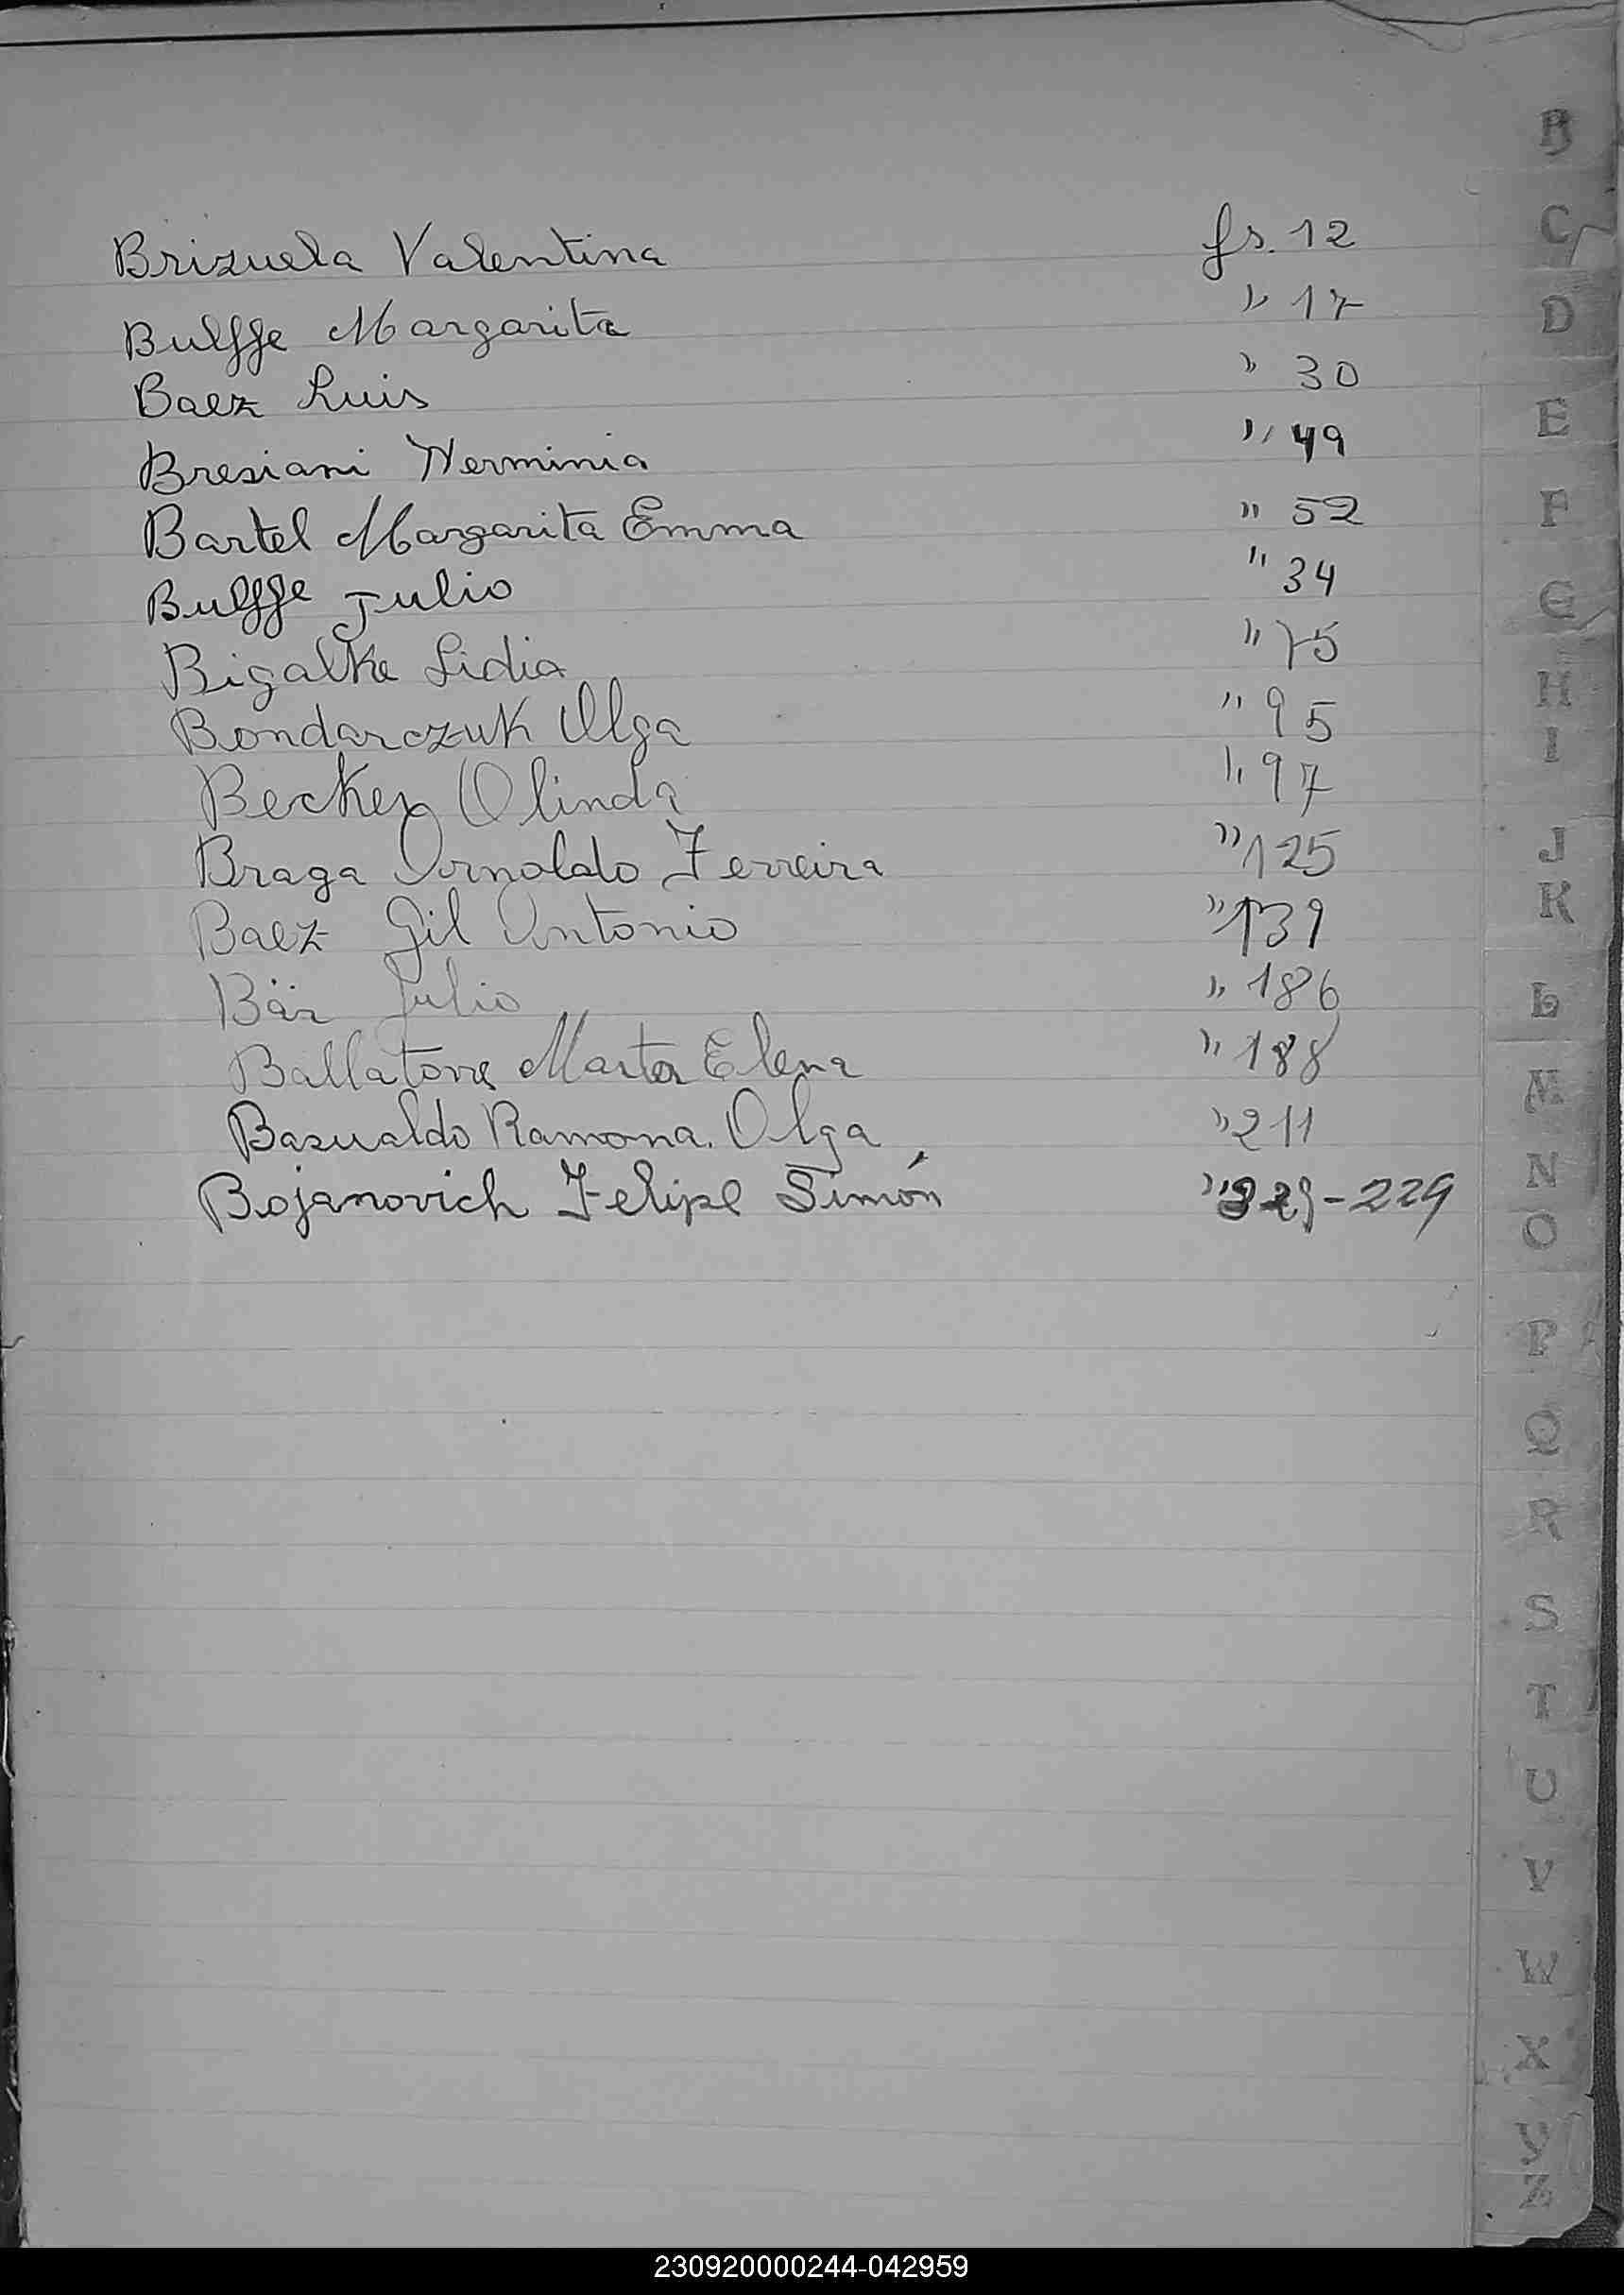 Brizuela Valentina fs. 12
Bulffe Margarita " 17
Baez Luis " 30
Bresiani Herminia " 49
Bartel Margarita Emma " 52
Bulffe Julio " 34
Bigalke Lidia " 75
Bondarczuk Olga " 95
Becker Olinda " 97
Braga Arnoldo Ferreira " 125
Baez Gil Antonio " 139
Bär Julio " 186
Ballatorre Marta Elena " 188
Basualdo Ramona Olga " 211
Bojanovich Felipe Simón " 229-229
B
C
D
E
F
G
H
I
J
K
L
M
N
O
P
Q
R
S
T
U
V
W
X
Y
Z
230920000244-042959